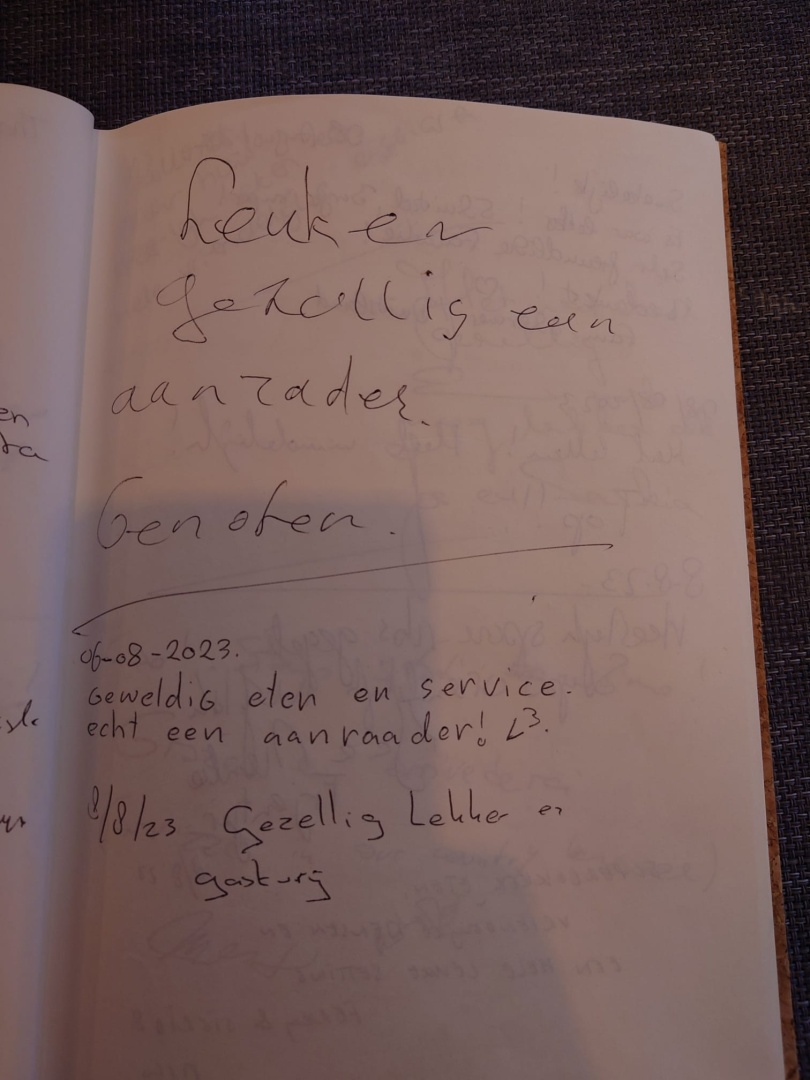 Leuk en
gezellig een
aanrader.
Genoten.
06-08-2023.
Geweldig eten en service.
echt een aanraader! <3.
8/8/23 Gezellig Lekker en
gastvrij
en